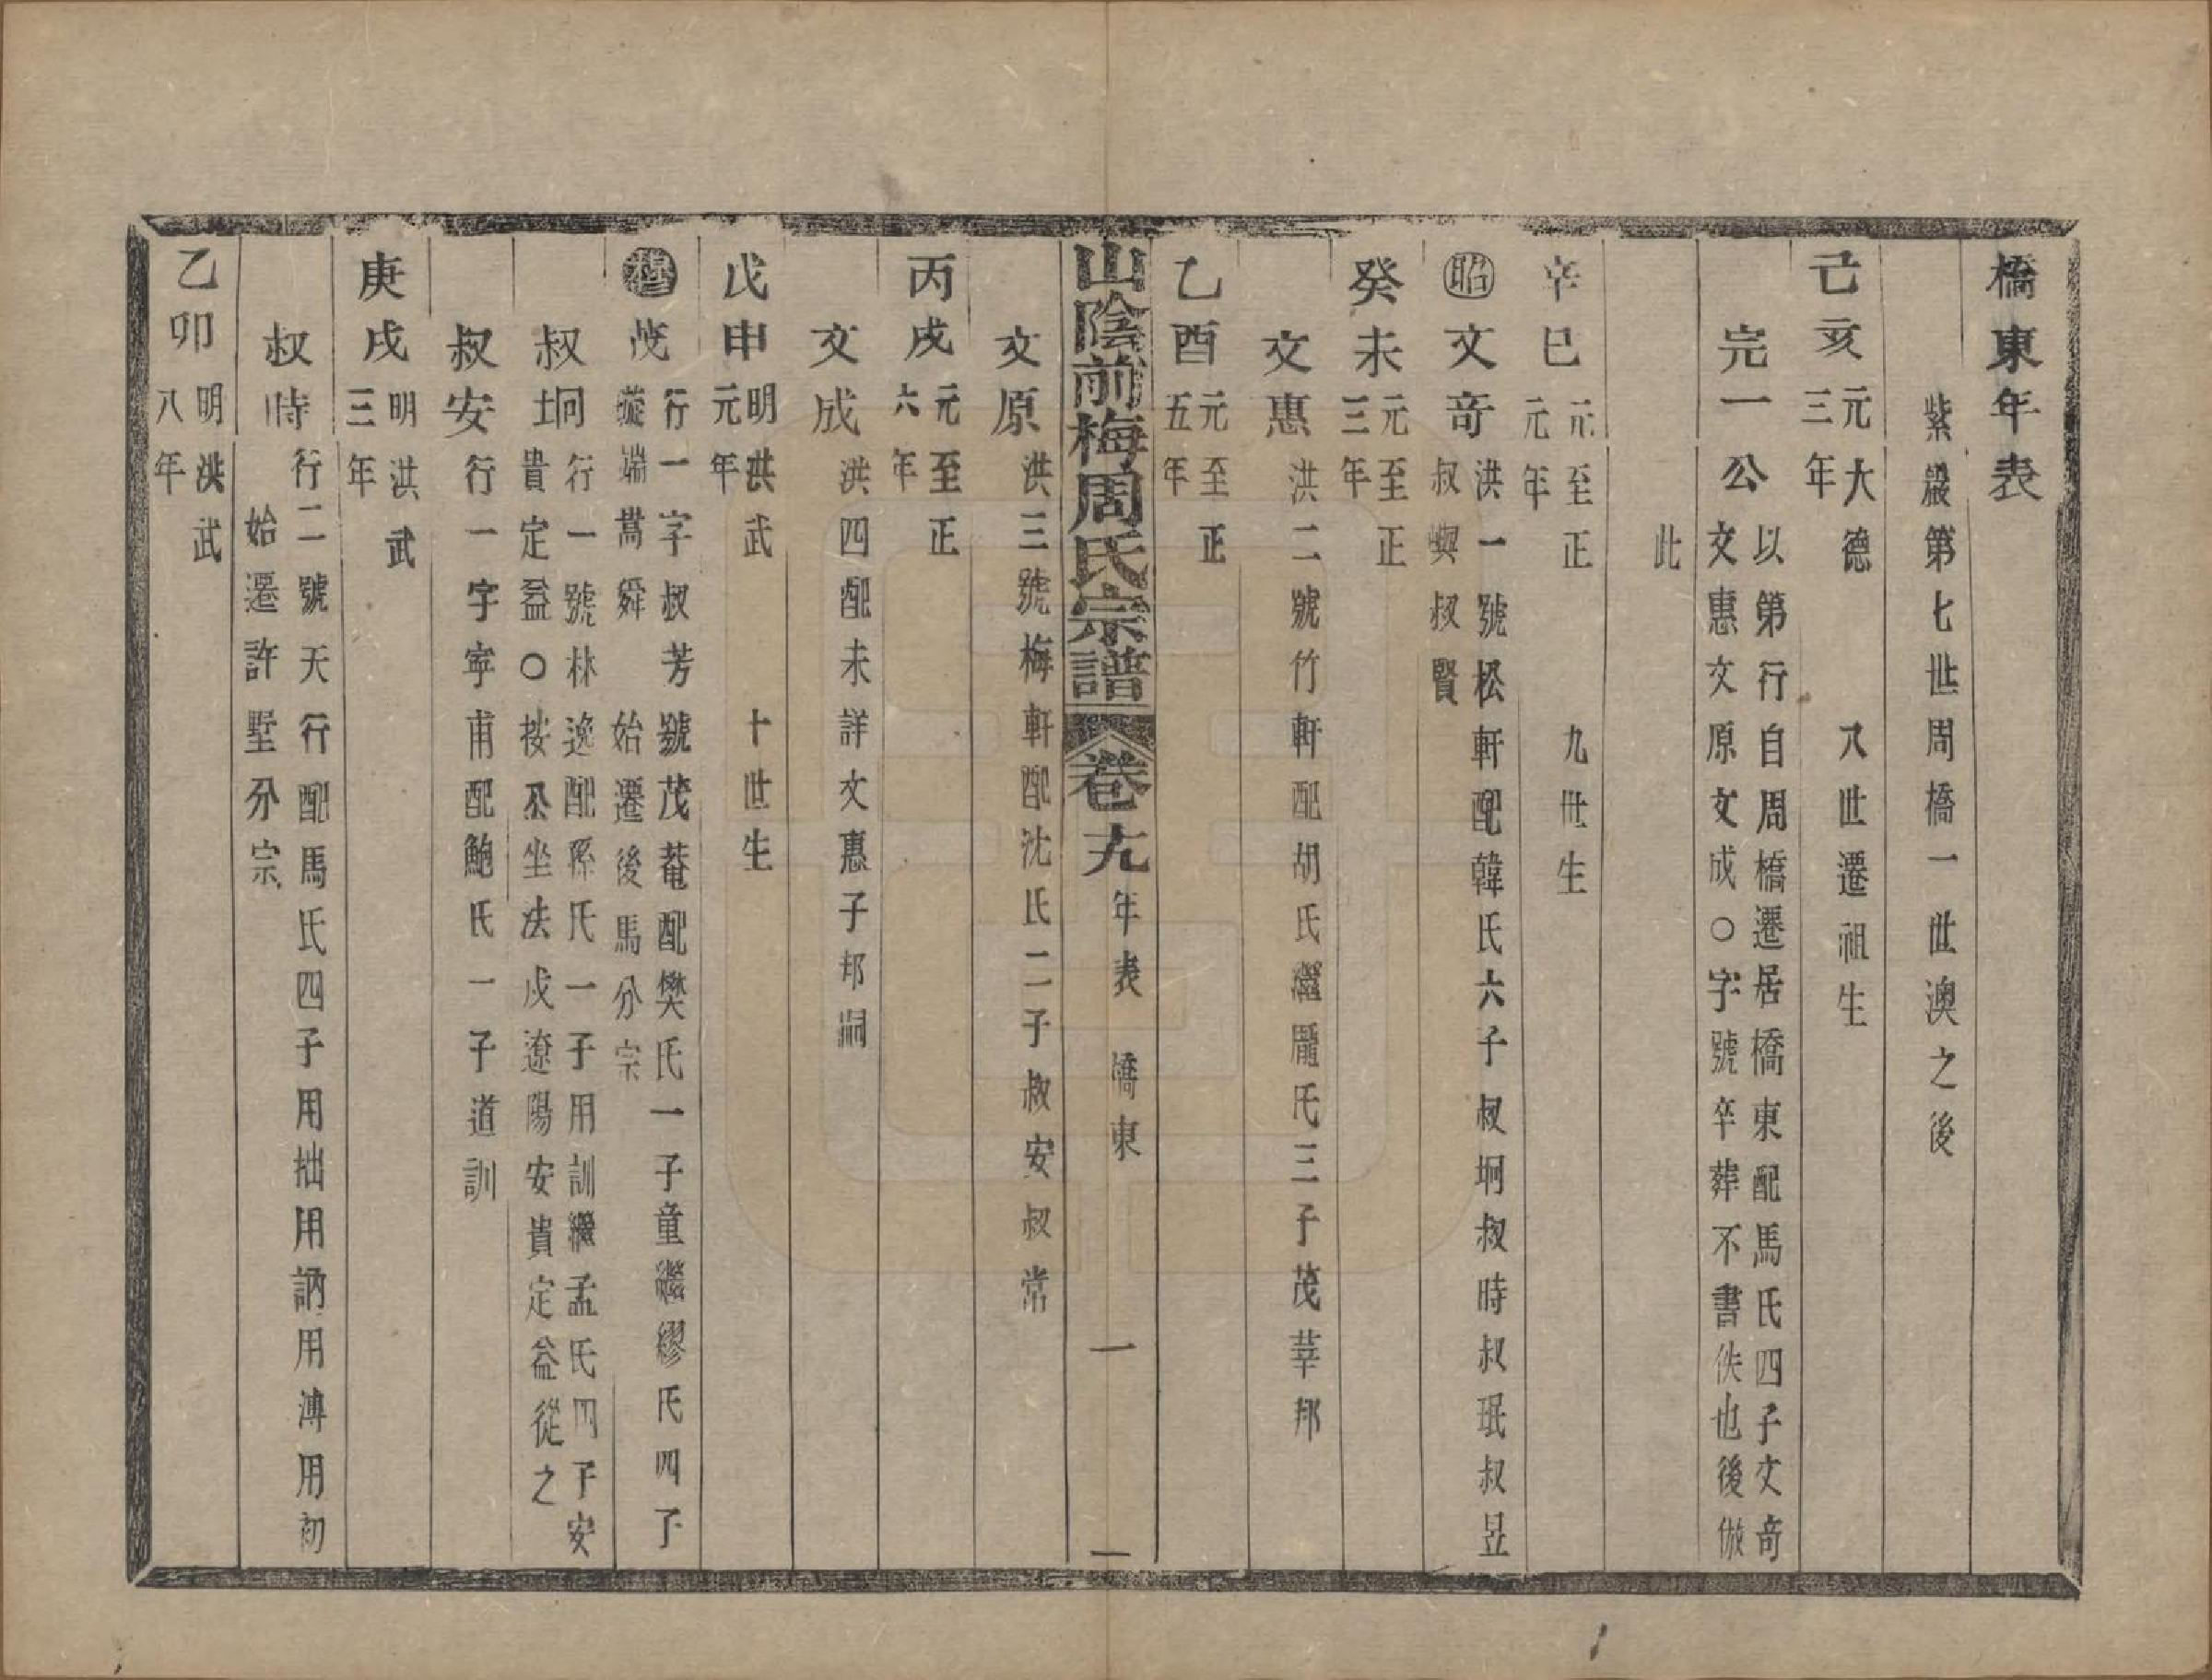 橋東年表
紫巖第七世周橋一世澳之後
己亥元大德三年 八世遷祖生
完一公以第行自周橋遷居橋東配馬氏四子文奇
文惠文原文成○字號卒葬不書佚也後倣
此
辛巳元至正元年 九世生
昭文奇洪一號松軒配韓氏六子叔坰叔時叔珉叔昱
叔輿叔賢
癸未元至正三年
文惠洪二號竹軒配胡氏繼龎氏三子茂莘邦
乙酉元至正五年
山陰前梅周氏宗譜 卷十九 年表 橋東 一
文原洪三號梅軒配沈氏二子叔安叔常
丙戌元至正六年
文成洪四配未詳文惠子邦嗣
戊申明洪武元年 十世生
穆茂行一字叔芳號茂菴配樊氏一子童繼繆氏四子
璇端暠舜 始遷後馬分宗
叔坰行一號林逸配孫氏一子用訓繼孟氏四子安
貴定益○按公坐法戍遼陽安貴定益從之
叔安行一字寧甫配鮑氏一子道訓
庚戌明洪武三年
叔時行二號天行配馬氏四子用拙用訥用溥用初
始遷許墅分宗
乙卯明洪武八年